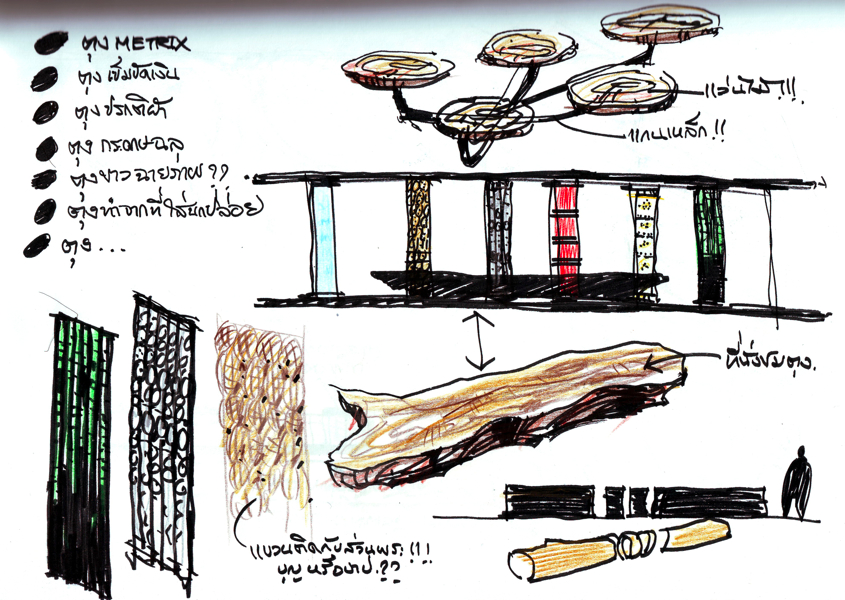 ตุง METRIX
ตุง เข็มขัดเงิน
ตุง ปรกติผ้า
ตุง กระดาษฉลุ
ตุงขาว ฉายภาพ ??
ตุงทำจากที่ใส่นกปล่อย
ตุง ...
แผ่นไม้ !!!
แกนเหล็ก !!
ที่นั่งชมตุง.
แขวนติดกับส่วนพระ !!!
บุญ หรือบาป ??